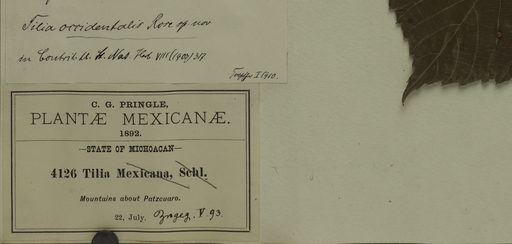 Tilia occidentalis Rose sp nov
in Contrib. U. S. Nat. Herb. VIII (1903) 317.
I 1910.
C. G. PRINGLE,
PLANTÆ MEXICANÆ.
1892.
—STATE OF MICHOACAN—
4126 Tilia Mexicana, Schl.
Mountains about Patzcuaro.
22, July. V. 93.